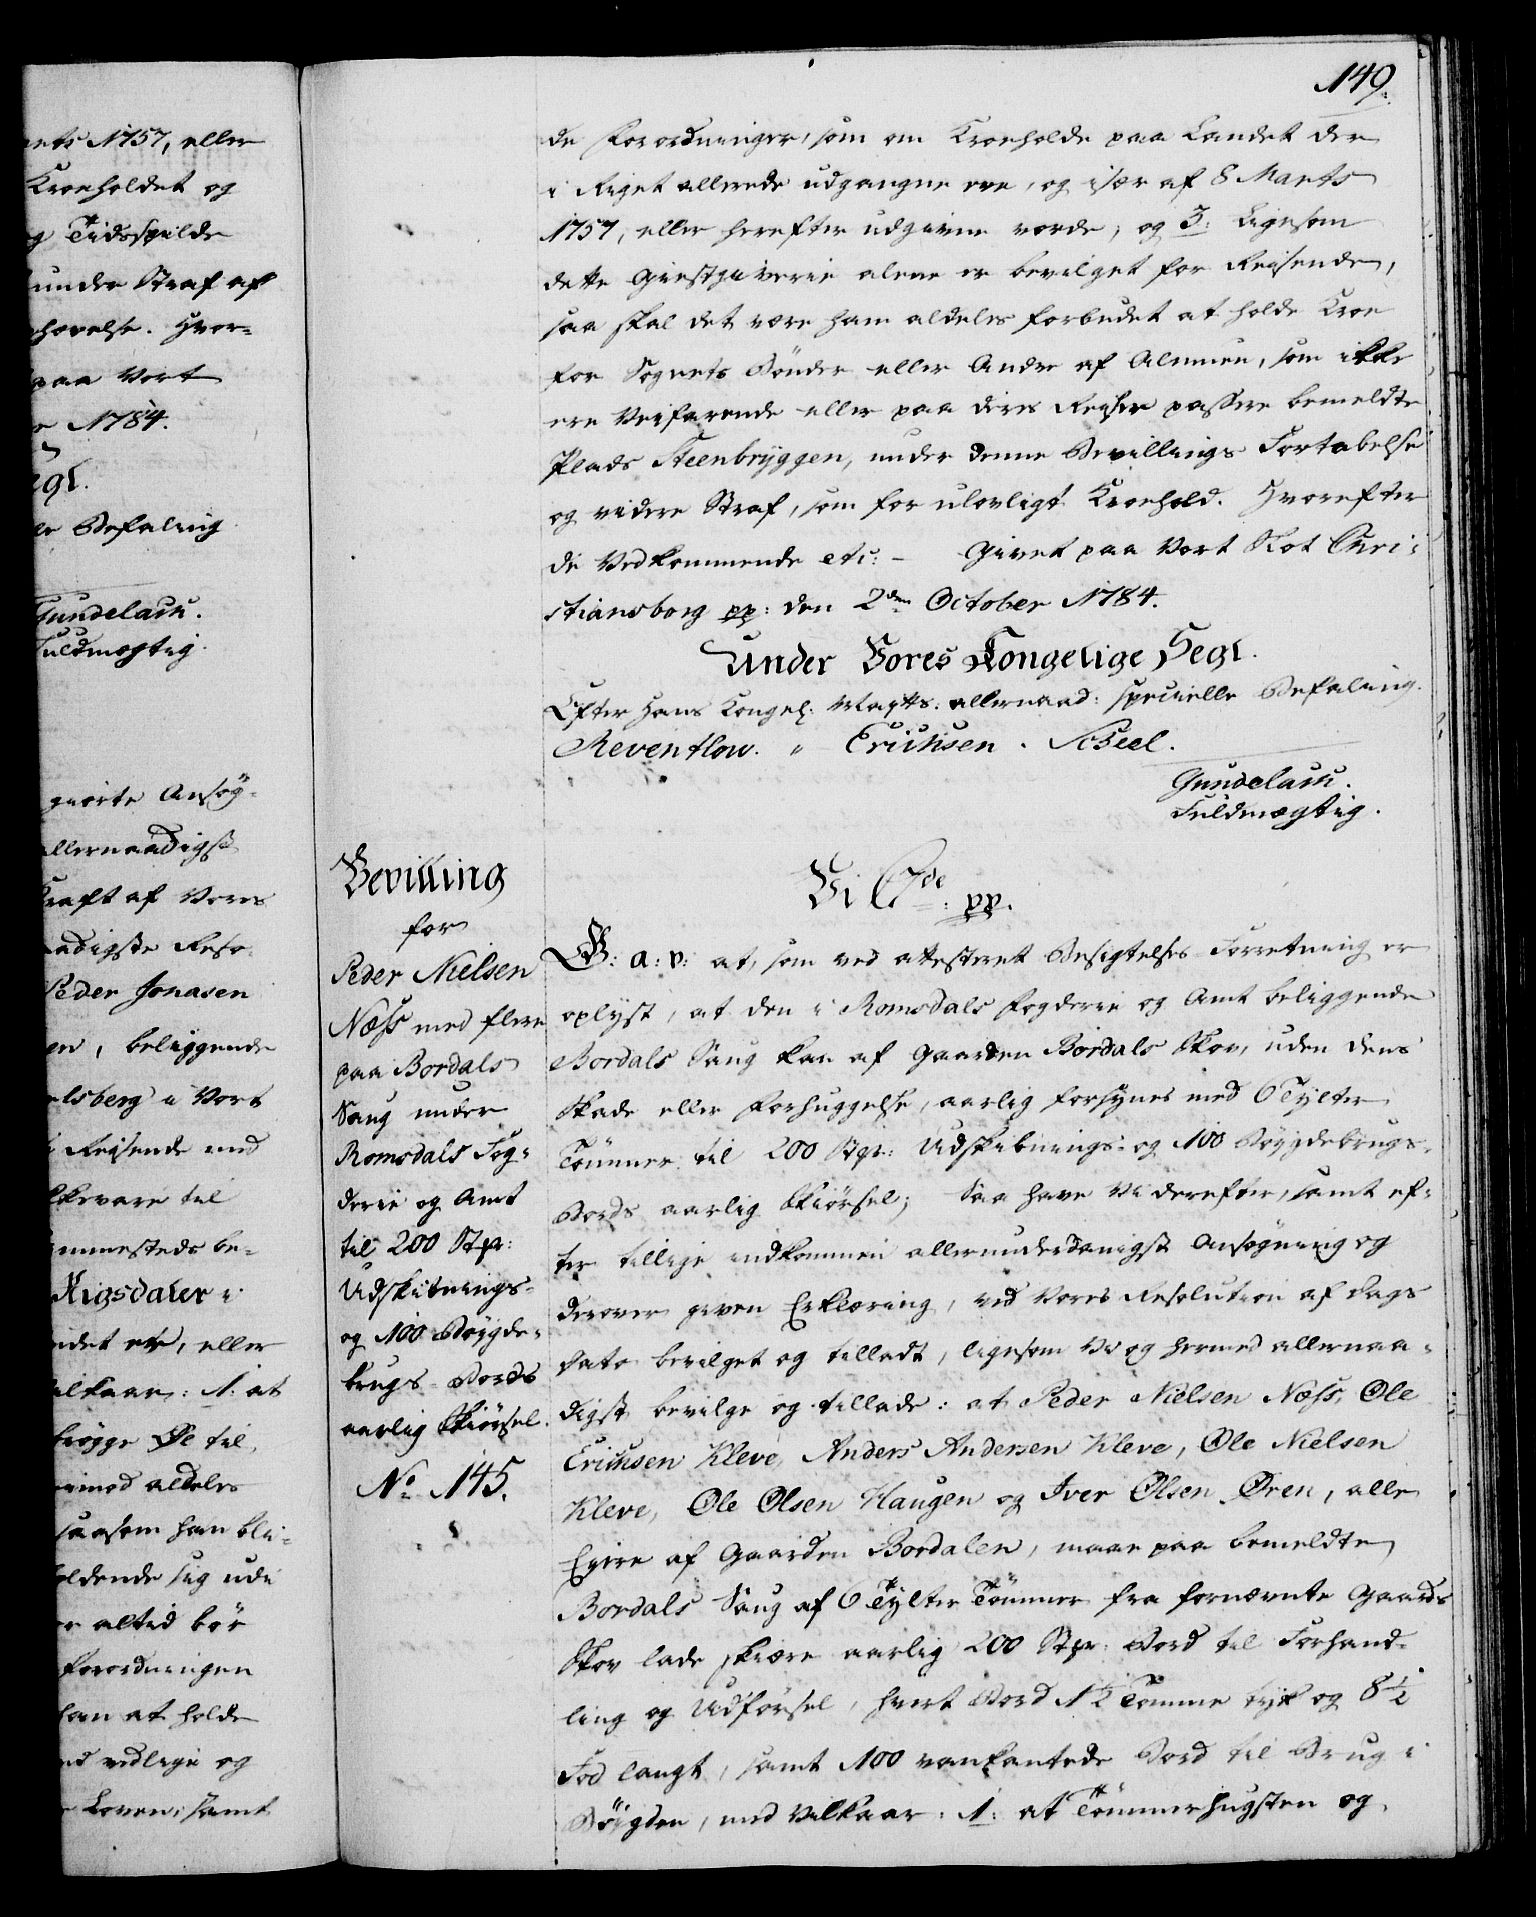 149.
ets 1757, eller
Kroeholdet og
g Tidsspilde
under Straf af
hævelse. Hvor-
paa Vort
e 1784.
egl.
le Befaling
Gundelach.
Fuldmægtig.
giorte Ansøg-
allernaadigst
Kraft af Vores
naadigste Reso-
Peder Jonasen
en, beliggende
elsberg i Vort
Reisende med
kevare til
ammesteds be-
Rigsdaler i
det er, eller
ilkaar: 1. at
brygge Øl til
imod aldeles
saasom han bli-
oldende sig udi
er altid bør
Forordningen
han at holde
nd vedlige og
Loven, samt
de Forordninger, som om Kroeholde paa Landet der
i Riget allerede udgangne ere, og især af 8 Marts
1757, eller herefter udgivne vorde, og 3. Ligesom
dette Giestgiverie alene er bevilget for Reisende,
saa skal det være ham aldeles forbudet at holde Kroe
for Sognets Bönder eller Andre af Almuen, som ikke
ere Veifarende eller paa deres Reiser passere bemeldte
Plads Steenbryggen, under denne Bevillings Fortabelse
og videre Straf, som for ulovligt Kroehold. Hvorefter
de Vedkommende etc: - Givet paa Vort Slot Chri-
stiansborg pp: den 2den October 1784.
Under Vores Kongelige Segl.
Efter Hans Kongel: Mayts: allernaad: specielle Befaling.
Reventlow. " Erichsen. Scheel.
Gundelach.
Fuldmægtig.
Bevilling
for
Peder Nielsen
Næss med flere
paa Bordals
Saug under
Romsdals Fog-
derie og Amt
til 200 Stpr:
Udskibnings-
og 100 Böygde-
brugs-Bords
aarlig Skiörsel.
No. 145.
Vi C 7de: pp.
G: a: v: at, som ved attesteret Besigtelses-Forretning er
oplyst, at den i Romsdals Fogderie og Amt beliggende
Bordals Saug kan af Gaarden Bordals Skov, uden dens
Skade eller Forhuggelse, aarlig forsynes med 6 Tylter
Tömmer til 200 Stpr: Udskibnings- og 100 Böygdebrugs-
Bords aarlig Skiörsel; Saa have Vi derefter, samt ef-
ter tillige indkommen allerunderdanigst Ansögning og
derover given Erklæring, ved Vores Resolution af Dags
Dato bevilget og tilladt, ligesom Vi og hermed allernaa-
digst bevilge og tillade: at Peder Nielsen Næss, Ole
Erichsen Kleve, Anders Andersen Kleve, Ole Nielsen
Kleve, Ole Olsen Haugen og Iver Olsen Øren, alle
Eyere af Gaarden Bordalen, maae paa bemeldte
Bordals Saug af 6 Tylter Tömmer fra fornævnte Gaards
Skov lade skiære aarlig 200 Stpr: Bord til Forhand-
ling og Udförsel, hvert Bord 1½ Tomme tyk og 8½
Fod langt, samt 100 vankantede Bord til Brug i
Böigden, med Vilkaar: 1. at Tömmerhugsten og